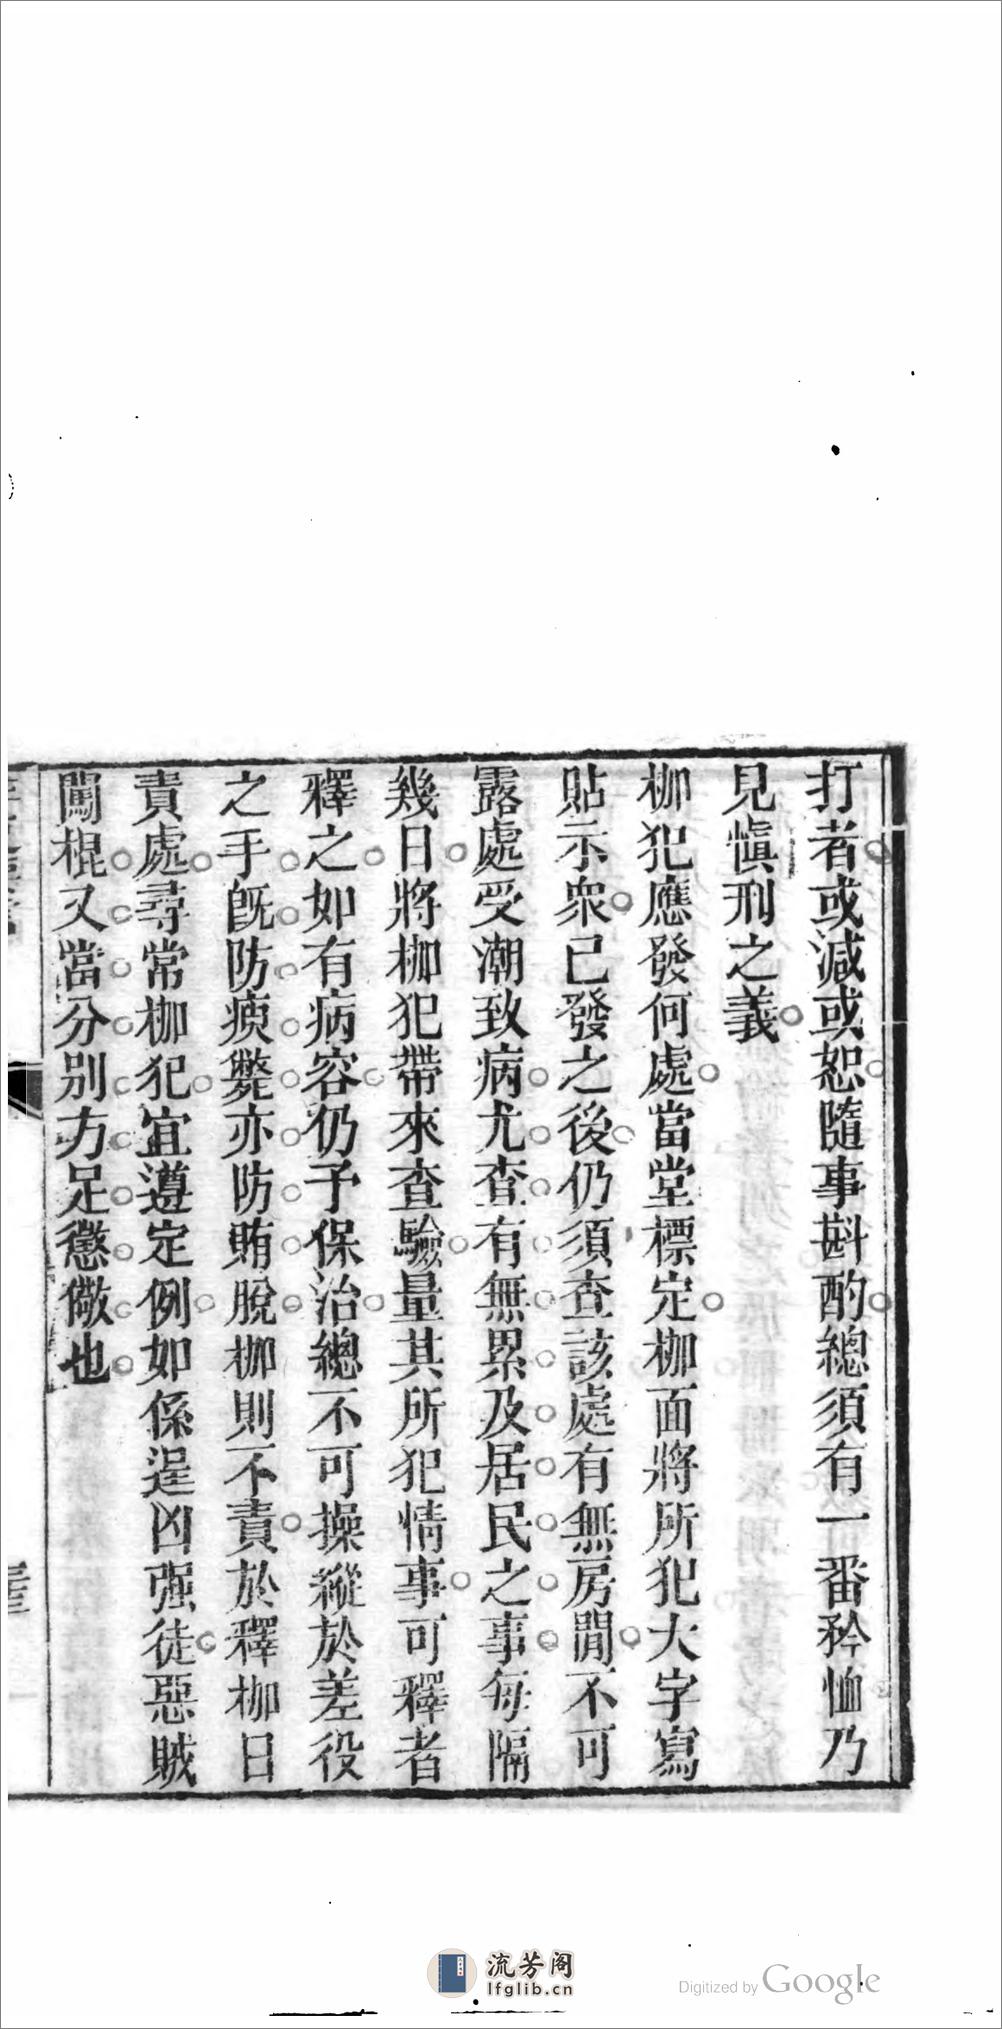 打者或減或恕隨事斟酌總須有一番矜恤乃
見愼刑之義
枷犯應發何處當堂標定枷面將所犯大字寫
貼示衆已發之後仍須查該處有無房間不可
露處受潮致病尤查有無累及居民之事每隔
幾日將枷犯帶來查驗量其所犯情事可釋者
釋之如有病容仍予保治總不可操縱於差役
之手旣防瘐斃亦防賄脫枷則不責於釋枷日
責處尋常枷犯宜遵定例如係逞凶强徒惡賊
闖棍又當分別方足懲儆也
流芳阁
lfglib.cn
Digitized by Google